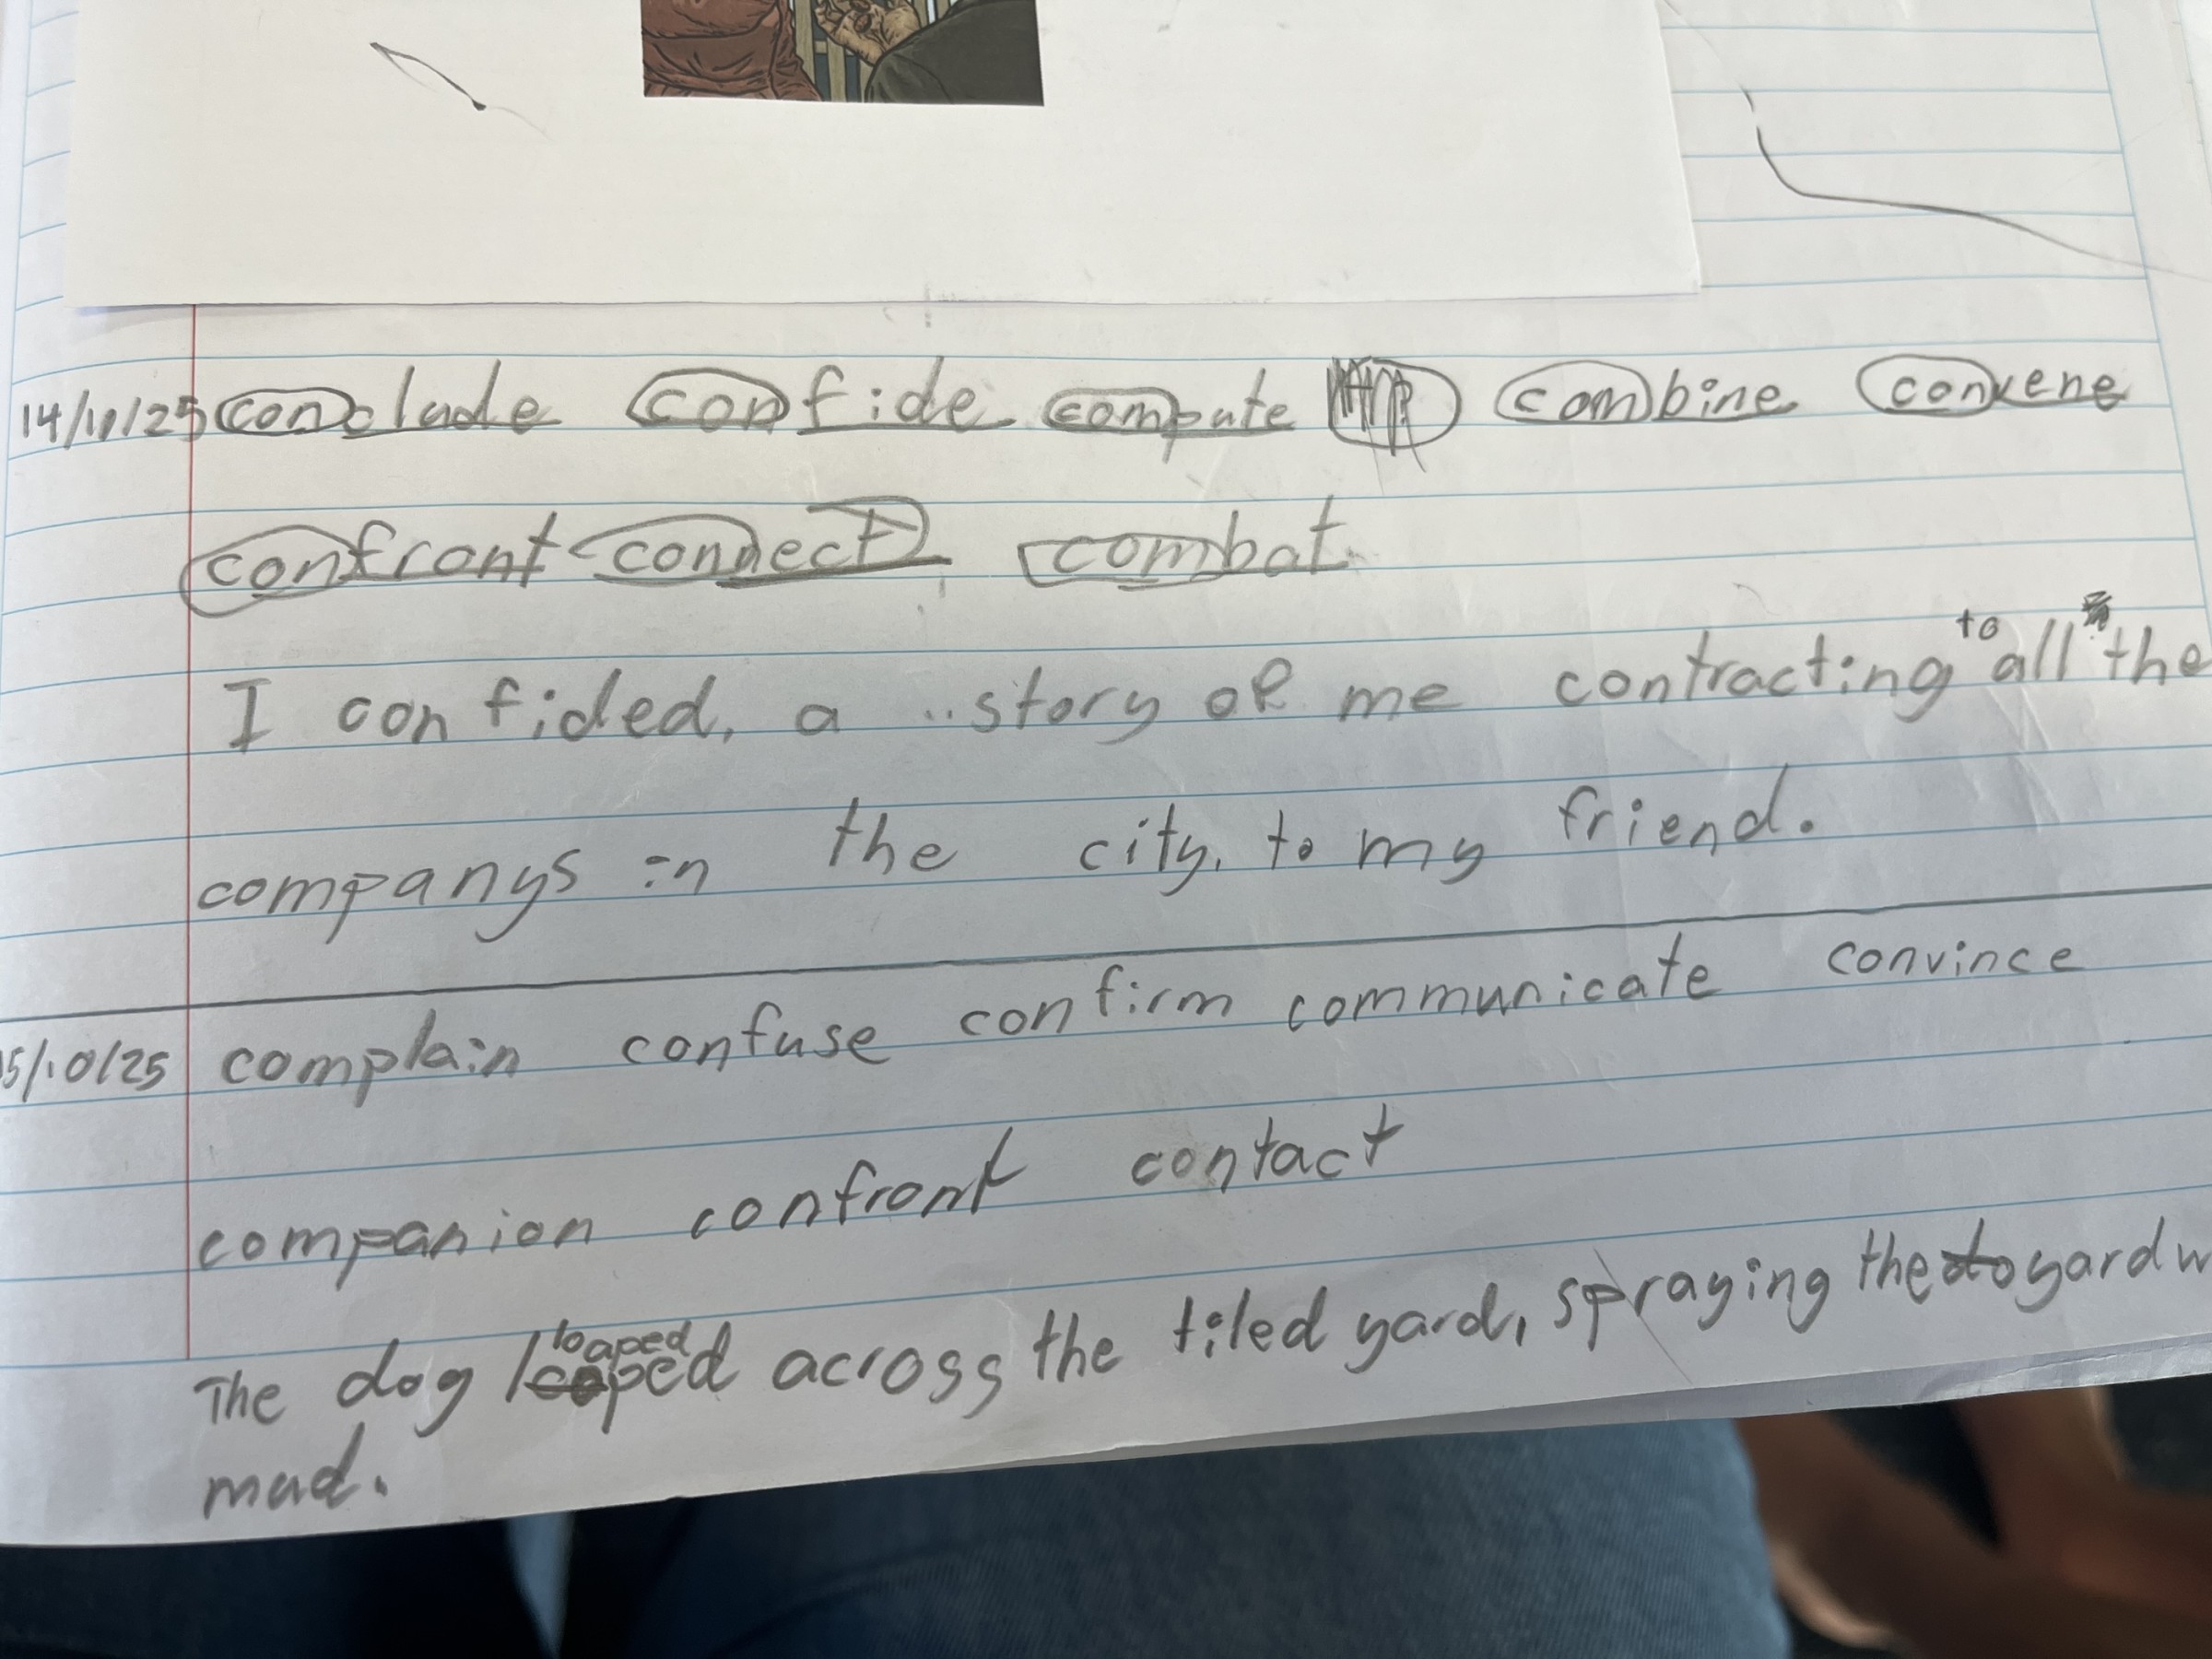 14/10/25 conclude confide compute combine convene
confront connect combat.
I confided, a story of me contracting to all the
companys in the city, to my friend.
15/10/25 complain confuse confirm communicate convince
companion confront contact
The dog loaped across the tiled yard, spraying the yard w
mud.